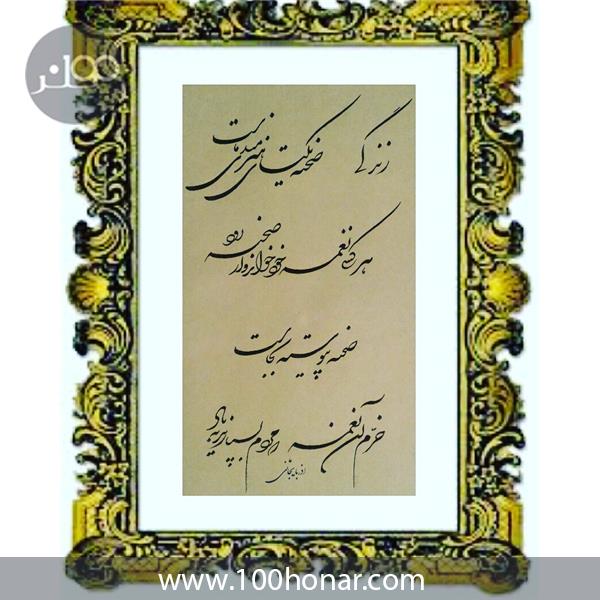 زندگی صحنه یکتای هنرمندی ماست
هر کسی نغمه خود خواند و از صحنه رود
صحنه پیوسته بجاست
خرم آن نغمه که مردم بسپارند به یاد
آذربایجانی
۱۰۰هنر
www.100honar.com